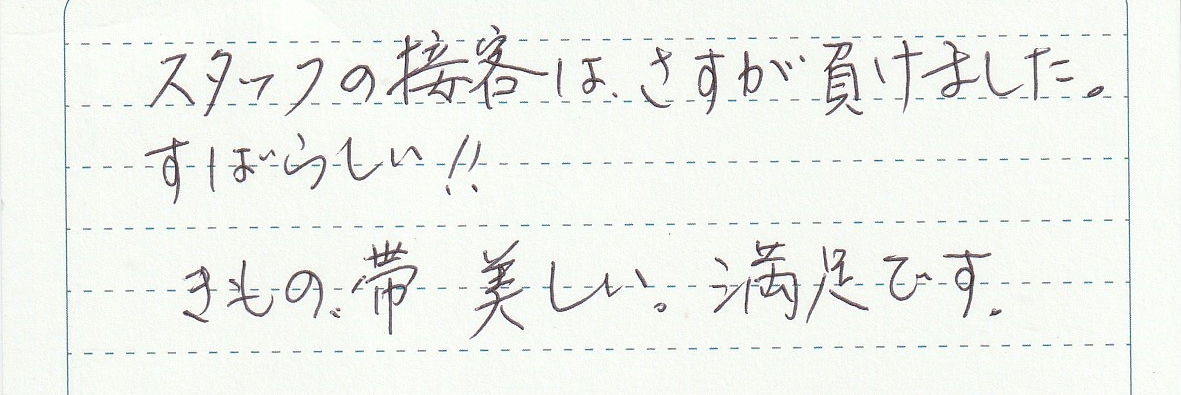 スタッフの接客は、さすが負けました。
すばらしい!!
きもの、帯 美しい。満足です。